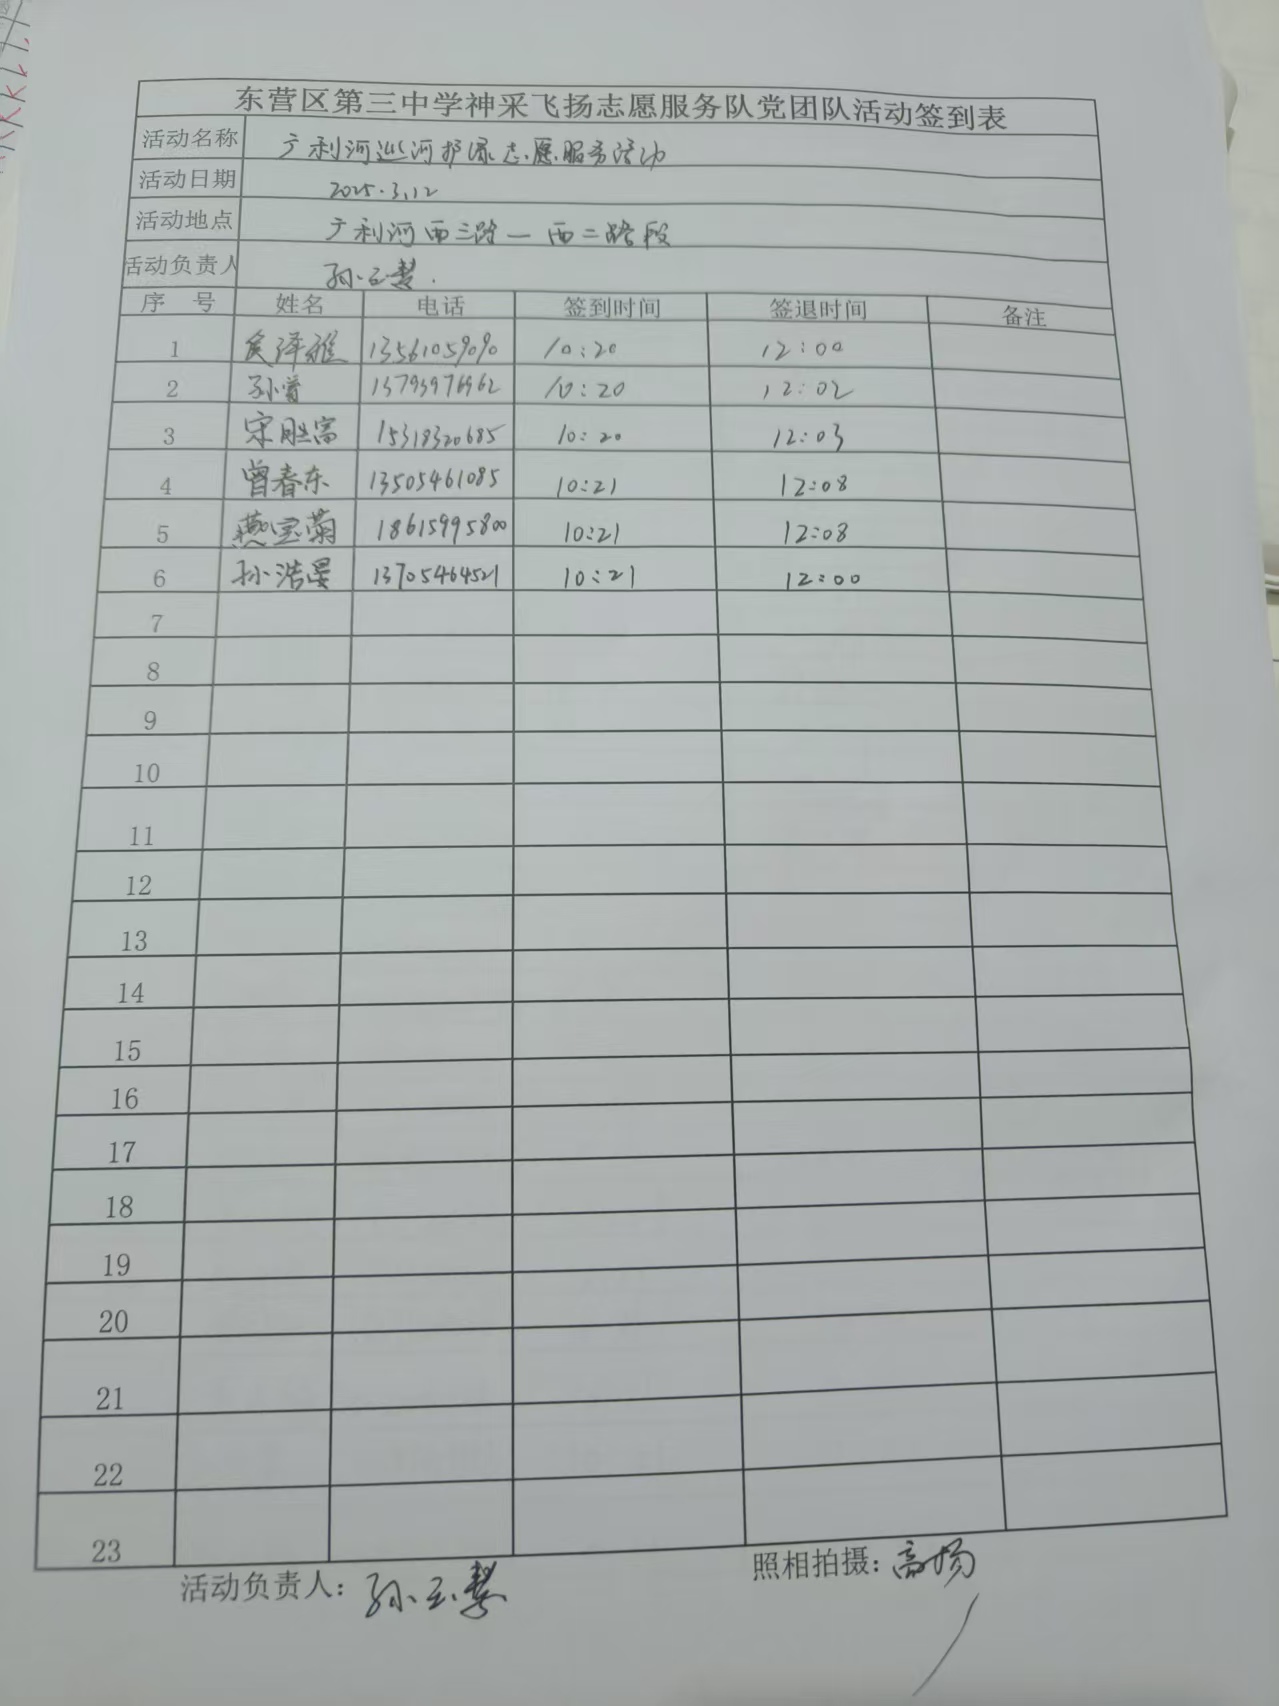 东营区第三中学神采飞扬志愿服务队党团队活动签到表
活动名称 广利河巡河护绿志愿服务活动
活动日期 2025.3.12
活动地点 广利河西三路—西二路段
活动负责人 孙云慧.
序 号 姓名 电话 签到时间 签退时间 备注
1 泽雅 13561059090 10:20 12:00
2 13793976962 10:20 12:02
3 宋胜富 15318320685 10:20 12:03
4 曾春东 13505461085 10:21 12:08
5 燕宝菊 18615995800 10:21 12:08
6 孙浩晏 13705464521 10:21 12:00
7
8
9
10
11
12
13
14
15
16
17
18
19
20
21
22
23
活动负责人：孙云慧 照相拍摄：高扬